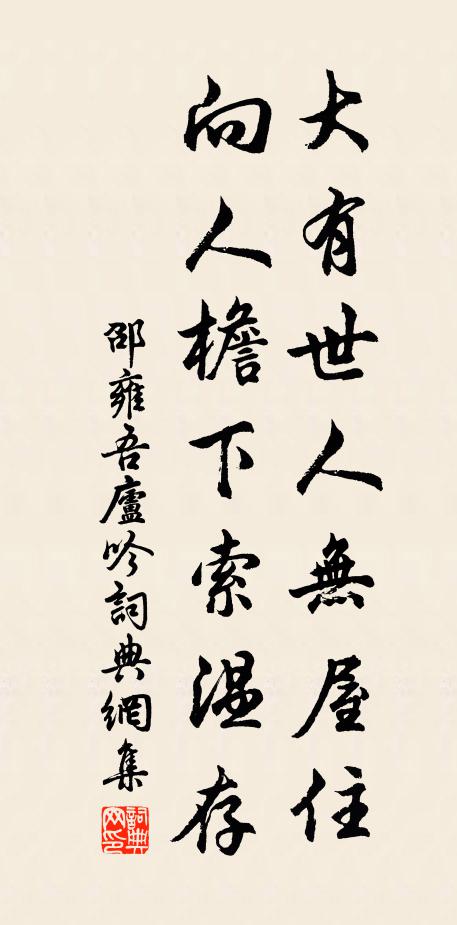 大有世人無屋住
向人檐下索温存
邵雍吾廬吟詞典網集
詞典网印